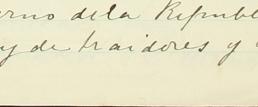 erno dela Republe
y de traidores y